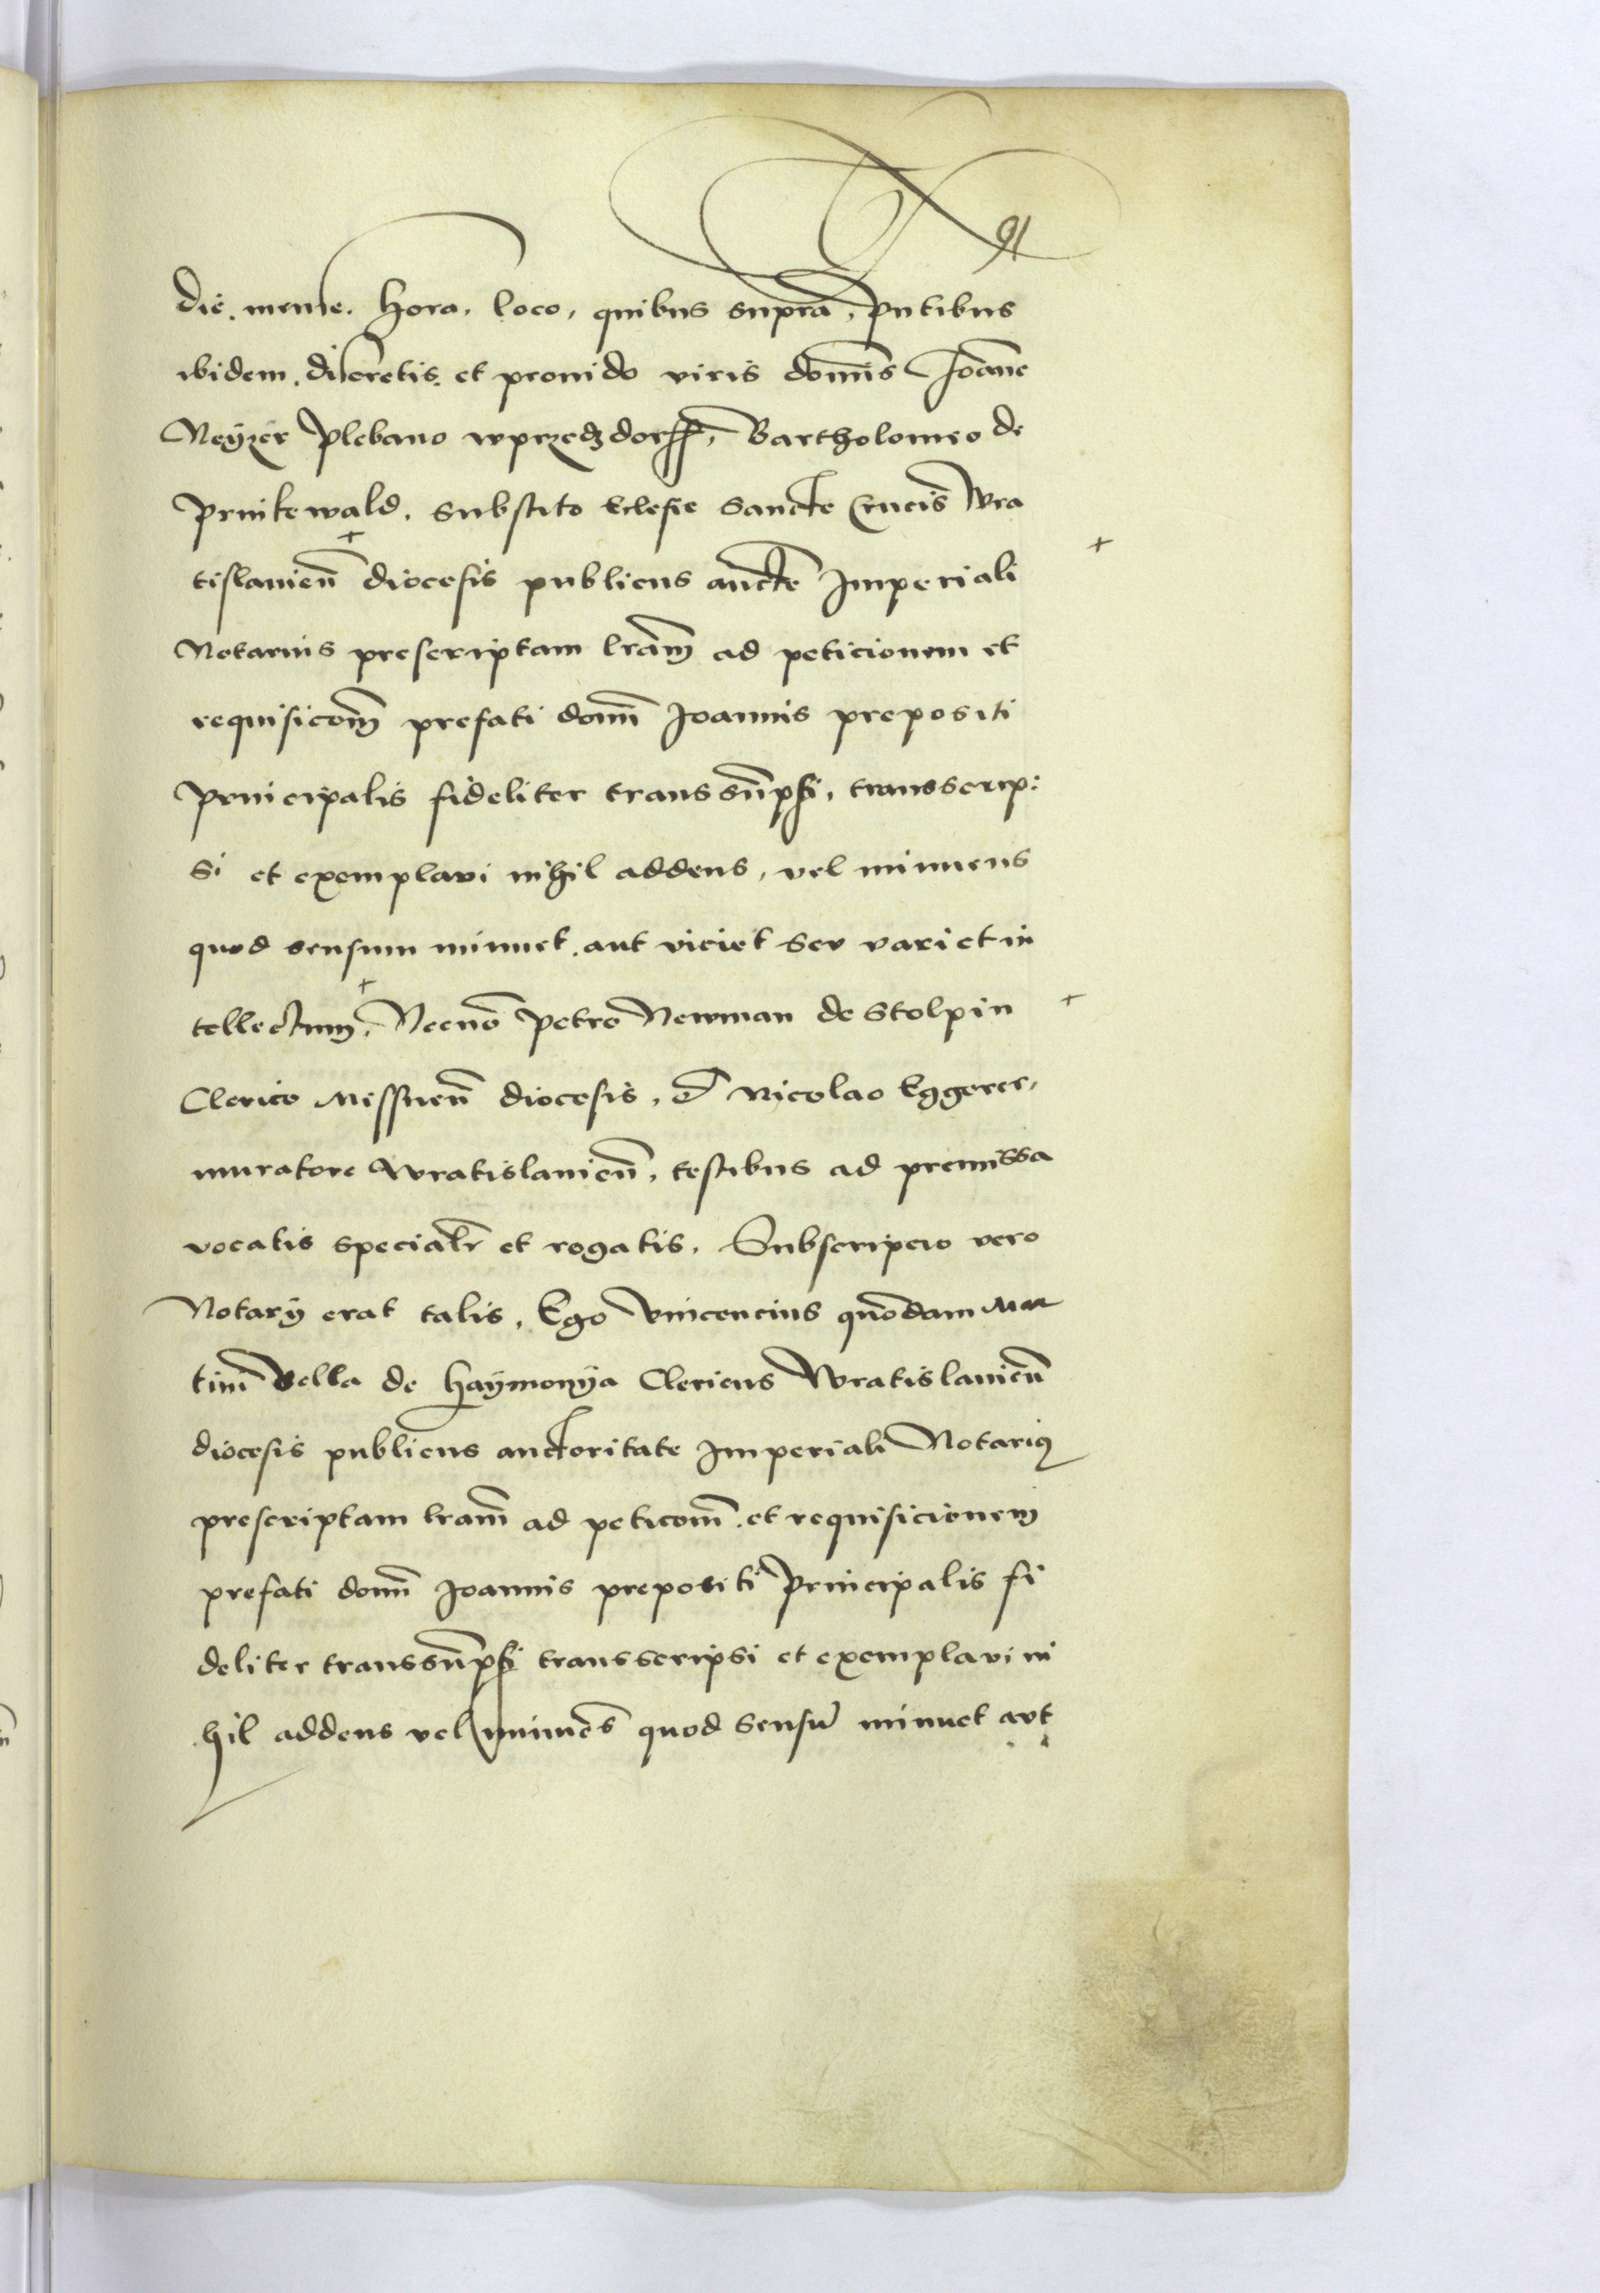 91
die. mense. hora. loco, quibus supra, pntibus
ibidem. discretis. et prouido viris domīs Joāne
Neÿzer Plebano wprzedzdorff, Bartholomeo de
Prnikewald. substito Eclesie Sancte Crucis Wra
tislauien̄ + diocesis publicus aucte Imperiali +
Notarius prescriptam lram̄ ad peticionem et
requisicom̄ prefati domī Joannis prepositi
Principalis fideliter transsūpsi, transscrip:
si et exemplaui nihil addens, vel minuens
quod sensum minuet. aut viciet seu variet in
tellectum +, Necno Petro Newman de Stolpin +
Clerico Missnen̄ diocesis, et Nicolao Eggerer,
muratore Wratislauien̄, testibus ad premissa
vocatis specialr et rogatis. Subscripcio vero
Notarÿ erat talis, Ego Vincencius quōdam Mar
tini Vella de Haÿmonÿa Clericus Wratislauien̄
diocesis publicus auctoritate Imperiali Notariꝰ
prescriptam lram̄ ad peticom̄. et requisicionem
prefati domī Joannis prepositi Principalis fi
deliter transsūpsi transscripsi et exemplaui ni
hil addens vel minuēs quod sensū minuet aut